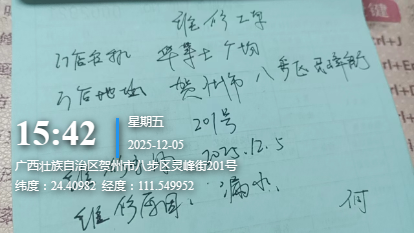 维修工单
门店名称 华莱士广场
门店地址 贺州市八步区灵峰街
201号
2025.12.5
维修原因: 漏水.
何
15:42
星期五
2025-12-05
广西壮族自治区贺州市八步区灵峰街201号
纬度：24.40982 经度：111.549952
键